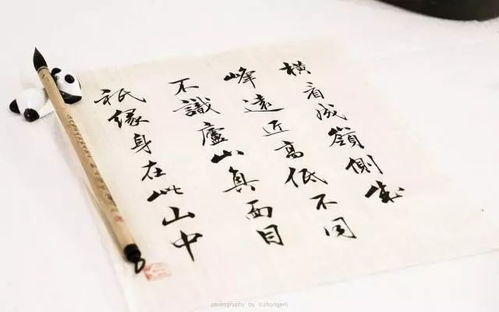 橫看成嶺側成
峰遠近高低不同
不識廬山真面目
衹緣身在此山中